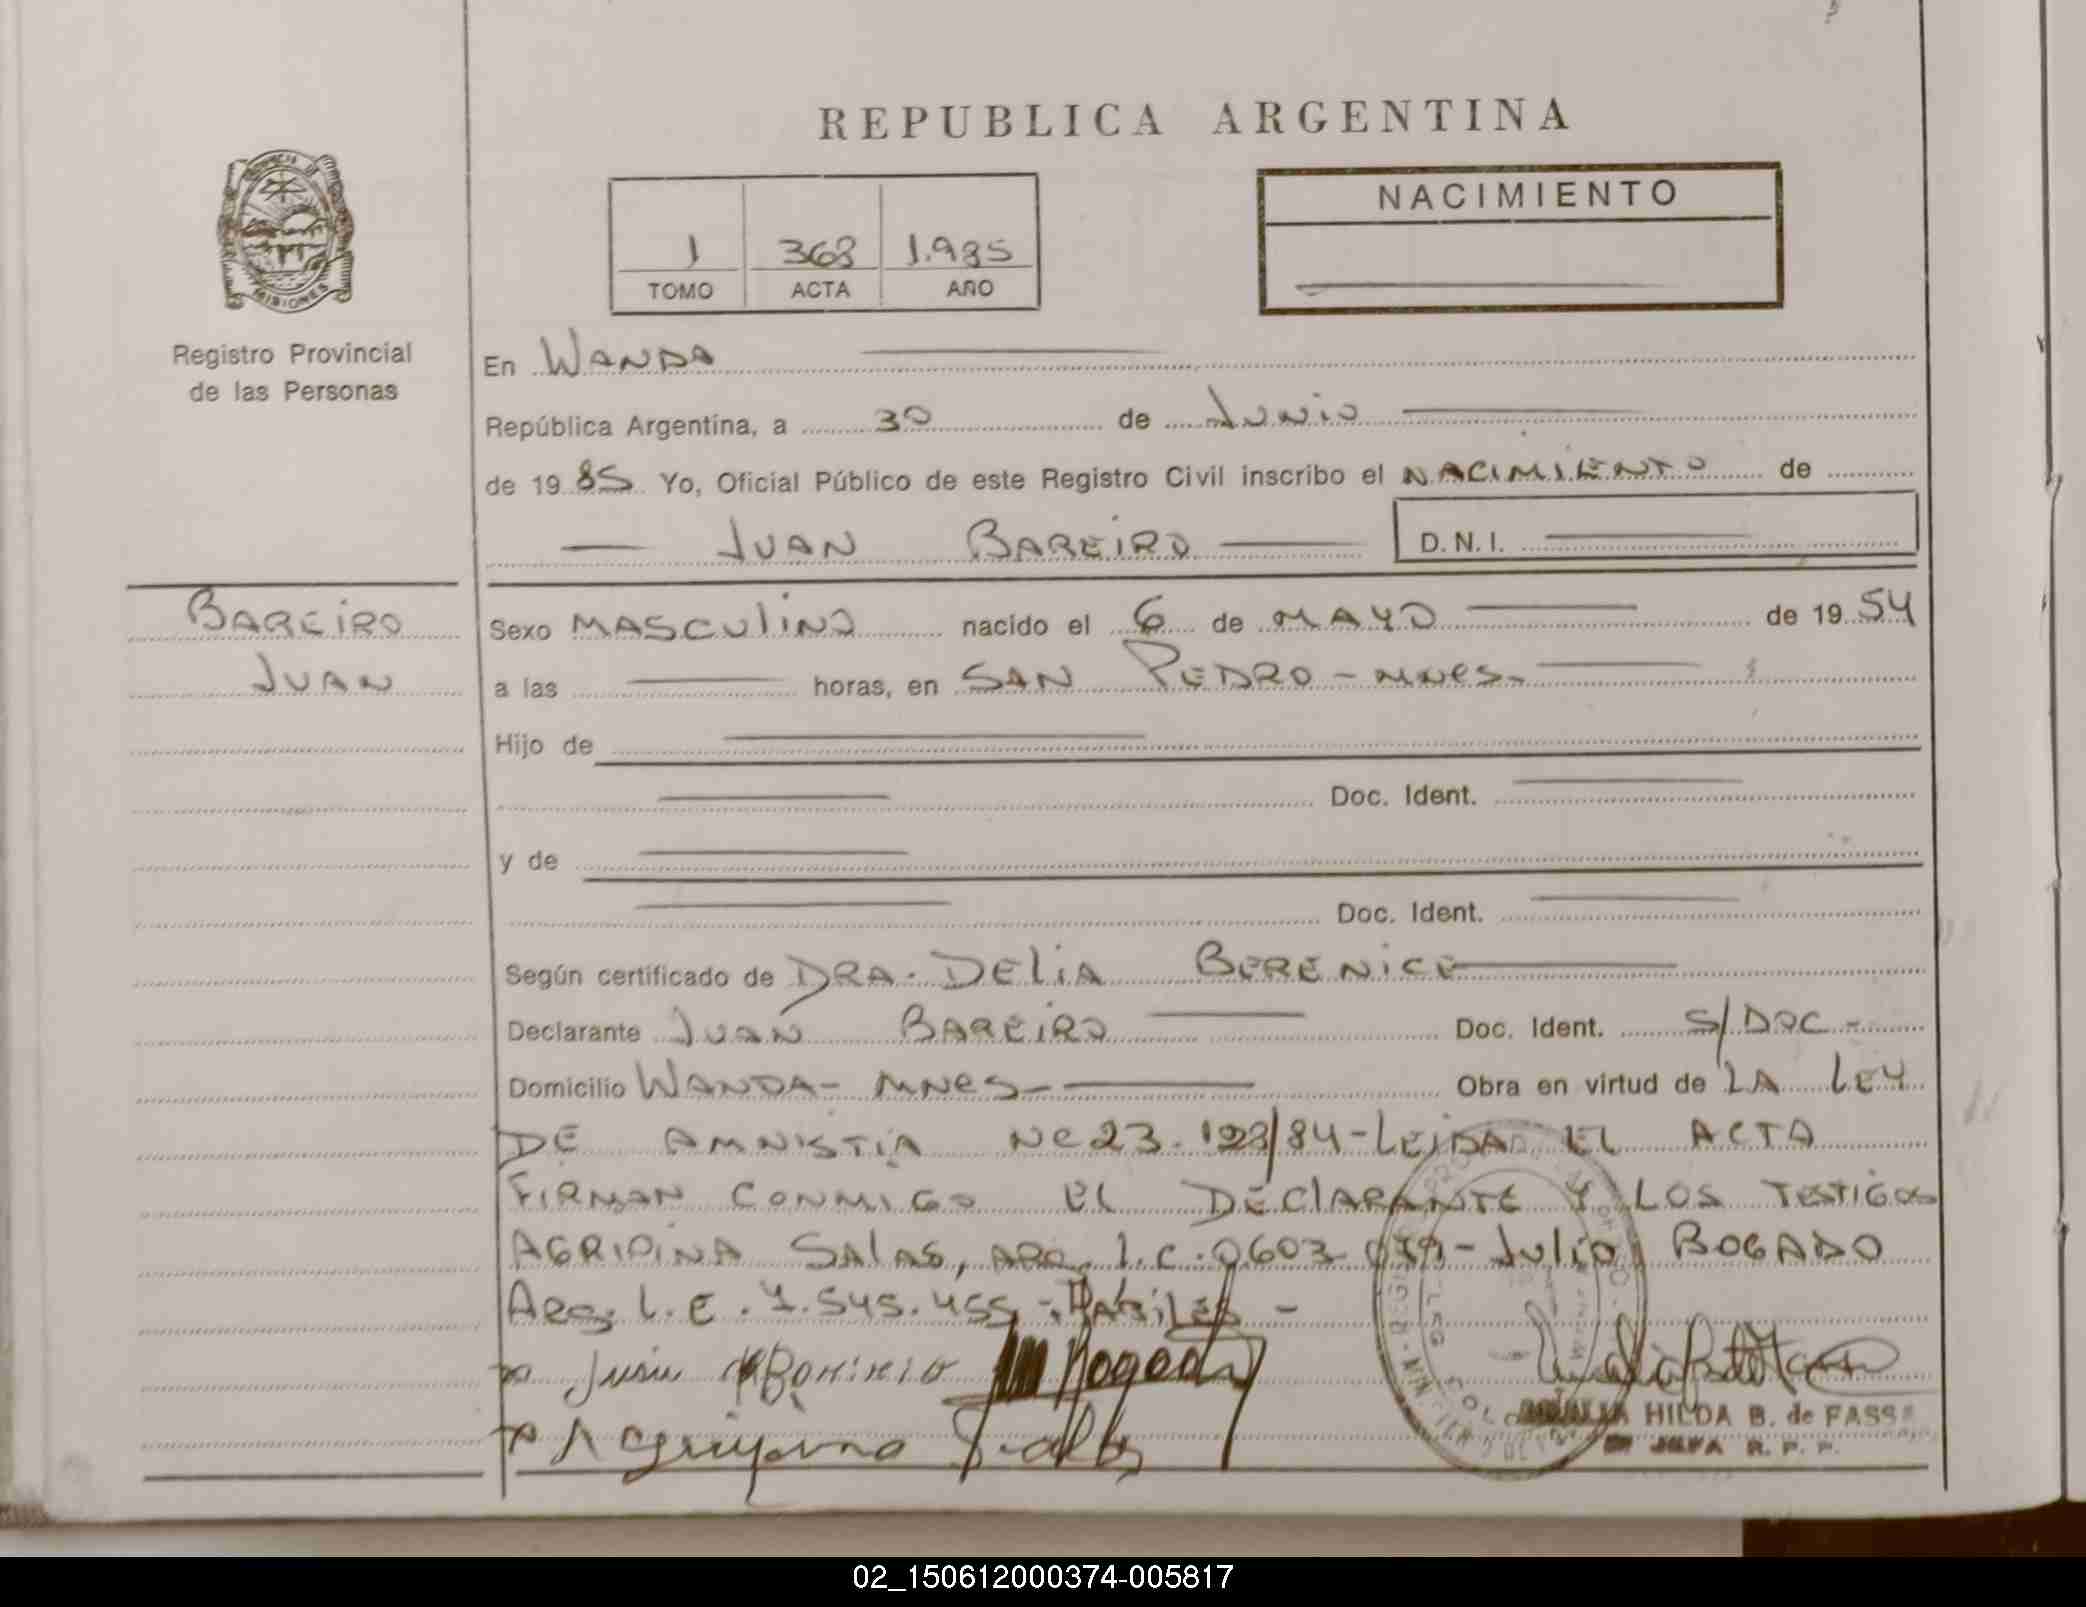 REPUBLICA ARGENTINA
NACIMIENTO
1 368 1.985
TOMO ACTA AÑO
MISIONES
Registro Provincial
de las Personas
En WANDA
República Argentina, a 30 de JUNIO
de 19 85 Yo, Oficial Público de este Registro Civil inscribo el NACIMIENTO de
JUAN BAREIRO D.N.I.
BAREIRO
JUAN
Sexo MASCULINO nacido el 6 de MAYO de 19 54
a las horas, en SAN PEDRO - MNES-
Hijo de
Doc. Ident.
y de
Doc. Ident.
Según certificado de DRA. DELIA BERENICE
Declarante JUAN BAREIRO Doc. Ident. S/DOC -
Domicilio WANDA - MNES - Obra en virtud de LA LEY
DE AMNISTIA Nº 23.128/84 - LEIDA EL ACTA
FIRMAN CONMIGO EL DECLARANTE Y LOS TESTIGOS
AGRIPINA SALAS, ARG. L.C. - JULIO BOGADO
ARG. L.E. 7.545.455 - HABILES -
Juan Bogado
Agripina Salas
HILDA B. de FASS